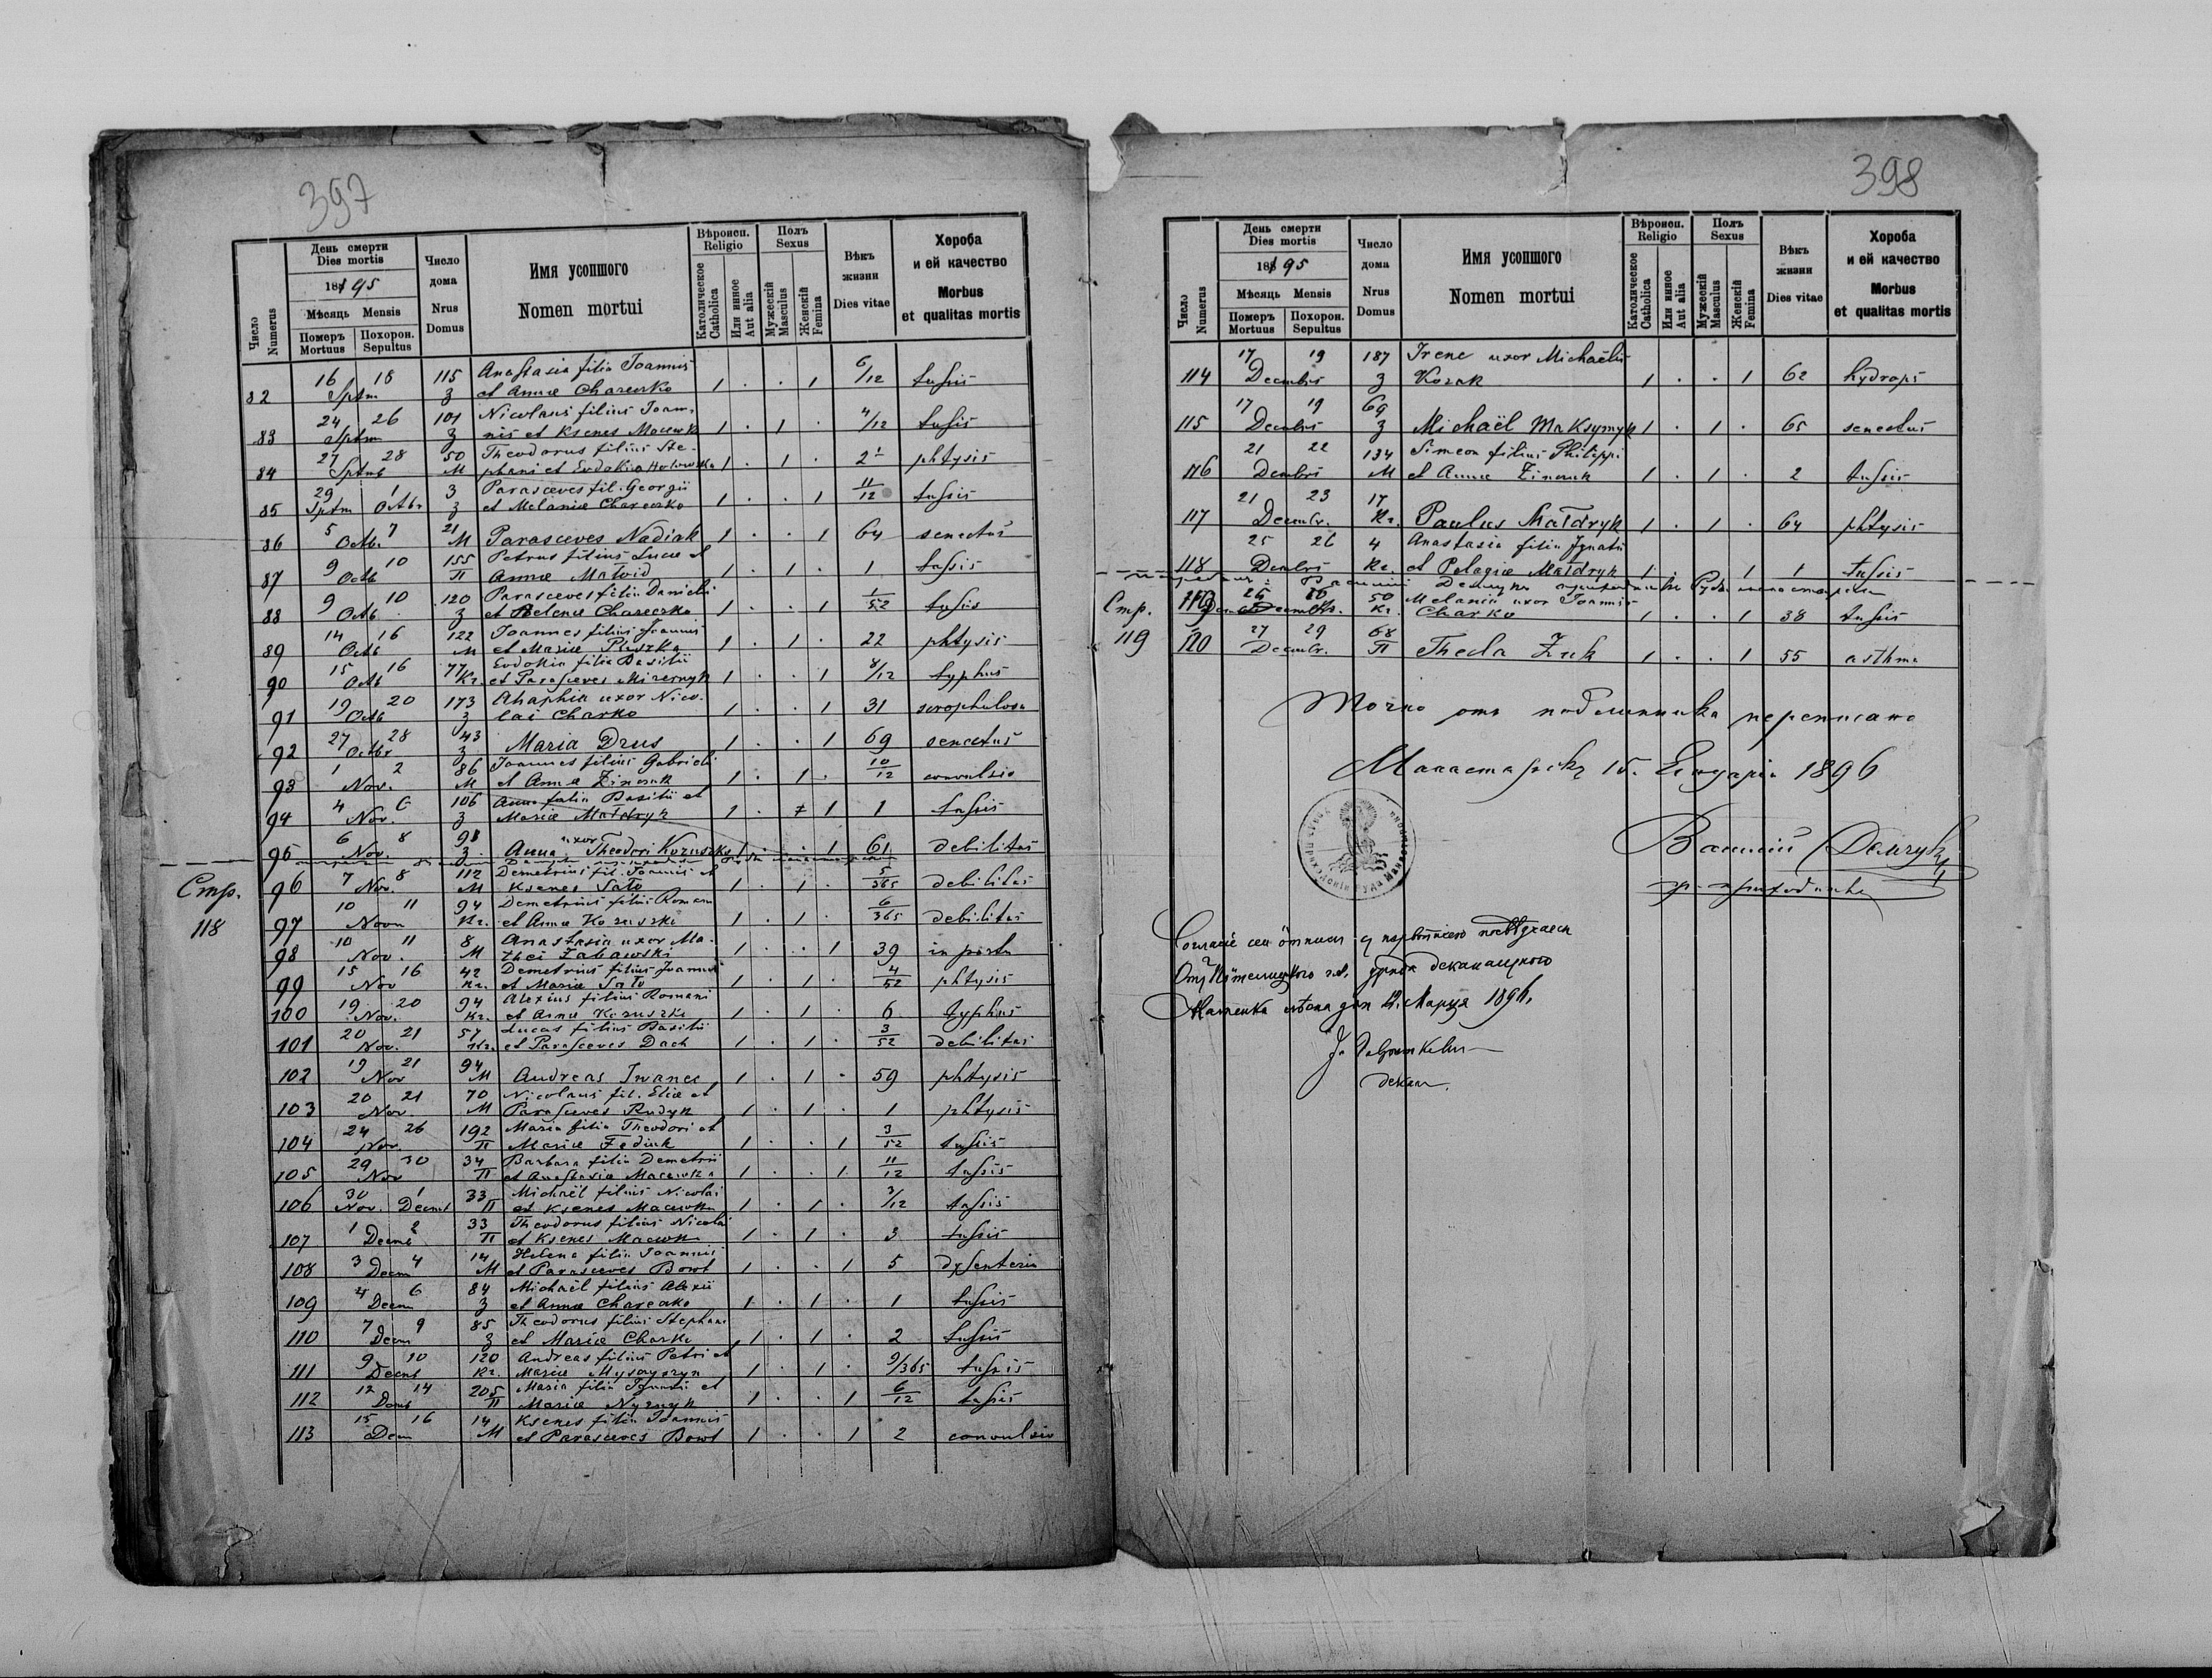 397
Число Numerus
День смерти
Dies mortis
1895
Мѣсяць Mensis
Померъ Mortuus
Похорон. Sepultus
Число дома
Nrus Domus
Имя усопшого
Nomen mortui
Вѣроисп. Religio
Католическое Catholica
Или инное Aut alia
Полъ Sexus
Мужескій Masculus
Женскій Femina
Вѣкъ жизни
Dies vitae
Хороба и ей качество
Morbus et qualitas mortis
16 18 115 Anastasia filia Joannis
82 Sptm З et Annae Charecko 1 . . 1 6/12 tussis
24 26 101 Nicolaus filius Joan-
83 Sptm З nis et Ksenes Macewk 1 . 1 . 4/12 tussis
27 28 50 Theodorus filius Ste-
84 Sptmb М phani et Eudokia 1 . 1 . phtysis
29 1 3 Parasceves fil. Georgii
85 Sptm Octbr З et Melaniae Charecko 1 . . 1 11/12 tussis
5 7 21
86 Octb. М Parasceves Nadiak 1 . . 1 64 senectus
9 10 155 Petrus filius Lucae et
87 Octb П Annae Matwid 1 . 1 . 1 tussis
9 10 120 Parasceves filia Danielis
88 Octb З et Helenae Charecko 1 . . 1 1/52 tussis
14 16 122 Joannes filius Joannis
89 Octb М et Mariae Pluszka 1 . 1 . 22 phtysis
15 16 77 Eudokia filia Basilii
90 Octb Кг. et Parasceves Mizernyk 1 . . 1 8/12 typhus
19 20 173 Ahaphia uxor Nico-
91 Octb З lai Charko 1 . . 1 31 scrophulosa
27 28 43
92 Octbr З Maria Drus 1 . . 1 69 senectus
1 2 86 Joannes filius Gabrielis
93 Nov. М et Annae Zinczuk 1 . 1 . 10/12 convulsio
4 6 106 Anna filia Basilii et
94 Nov. З Mariae Matdryk 1 . 1 1 tussis
6 8 98 uxor
95 Nov. З Anna Theodori Kozuszko 1 . . 1 61 debilitas
Стр. 118
7 8 112 Demetrius fil. Joannis et
96 Nov. М Ksenes Sato 1 . 1 . 5/365 debilitas
10 11 94 Demetrius filius Romani
97 Novm Кг. et Annae Kozuszko 1 . 1 . 6/365 debilitas
10 11 8 Anastasia uxor Ma-
98 Nov. М thei Zabawski 1 . . 1 39 in partu
15 16 42 Demetrius filius Joannis
99 Nov Кг. et Mariae Sato 1 . 1 . 4/52 phtysis
19 20 94 Alexius filius Romani
100 Nov. Кг. et Annae Kozuszko 1 . 1 . 6 typhus
20 21 57 Lucas filius Basilii
101 Nov. Кг. et Parasceves Dach 1 . 1 . 3/52 debilitas
19 21 94
102 Nov М Andreas Iwanec 1 . 1 . 59 phtysis
20 21 70 Nicolaus fil. Eliae et
103 Nov. М Parasceves Rudyk 1 . 1 . 1 phtysis
24 26 192 Maria filia Theodori et
104 Nov. П Mariae Fediuk 1 . . 1 3/52 tussis
29 30 34 Barbara filia Demetrii
105 Nov П et Anastasia Macewka 1 . . 1 11/12 tussis
30 1 33 Michaël filius Nicolai
106 Nov. Decmb П et Ksenes Macewka 1 . 1 . 3/12 tussis
1 2 33 Theodorus filius Nicolai
107 Decmb П et Ksenes Macewka 1 . 1 . 3 tussis
3 4 14 Helena filia Joannis
108 Decm М et Parasceves Bowt 1 . . 1 5 dysenteria
4 6 84 Michaël filius Alexii
109 Decm З et Annae Charecko 1 . 1 . 1 tussis
7 9 85 Theodorus filius Stephani
110 Decm З et Mariae Charko 1 . 1 . 2 tussis
9 10 120 Andreas filius Petri et
111 Decmb Кг. Mariae Mysczyszyn 1 . 1 . 9/365 tussis
12 14 205 Maria filia Ignatii et
112 Dcmb П Mariae Nyznyk 1 . . 1 6/12 tussis
15 16 14 Ksenes filia Joannis
113 Decm М et Parasceves Bowt 1 . . 1 2 convulsio
398
Число Numerus
День смерти
Dies mortis
1895
Мѣсяць Mensis
Померъ Mortuus
Похорон. Sepultus
Число дома
Nrus Domus
Имя усопшого
Nomen mortui
Вѣроисп. Religio
Католическое Catholica
Или инное Aut alia
Полъ Sexus
Мужескій Masculus
Женскій Femina
Вѣкъ жизни
Dies vitae
Хороба и ей качество
Morbus et qualitas mortis
17 19 187 Irene uxor Michaëlis
114 Decembris З Kozak 1 . . 1 62 hydrops
17 19 69
115 Decembris З Michaël Maksymyk 1 . 1 . 65 senectus
21 22 134 Simeon filius Philippi
116 Decmbris М et Annae Zinczuk 1 . 1 . 2 tussis
21 23 17
117 Decembr. Кг. Paulus Matdryk 1 . 1 . 64 phtysis
25 26 4 Anastasia filia Ignatii
118 Decmbris Кг. et Pelagiae Matdryk 1 . . 1 1 tussis
Стр. 119
26 50 Melania uxor Joannis
119 Decembr. Кг. Charko 1 . . 1 38 tussis
27 29 68
120 Decembr. П Thecla Zuk 1 . . 1 55 asthma
Точно отъ подлинника переписано
15. Януарія 1896
Василій Демчукъ
приходникъ
деканального
12. Марця 1896.
декан.